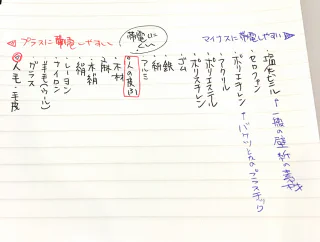 プラスに帯電しやすい
帯電しにくい
マイナスに帯電しやすい
・塩化ビニル ← 一般の壁紙の素材
・セロファン
・ポリエチレン ← バケツなどのプラスチック
・アクリル
・ポリエステル
・ポリスチレン
・ゴム
・鉄
・紙
・アルミ
・人の皮ふ
・木材
・麻
・木綿
・絹
・レーヨン
・ナイロン
・羊毛(ウール)
・ガラス
・人毛・毛皮